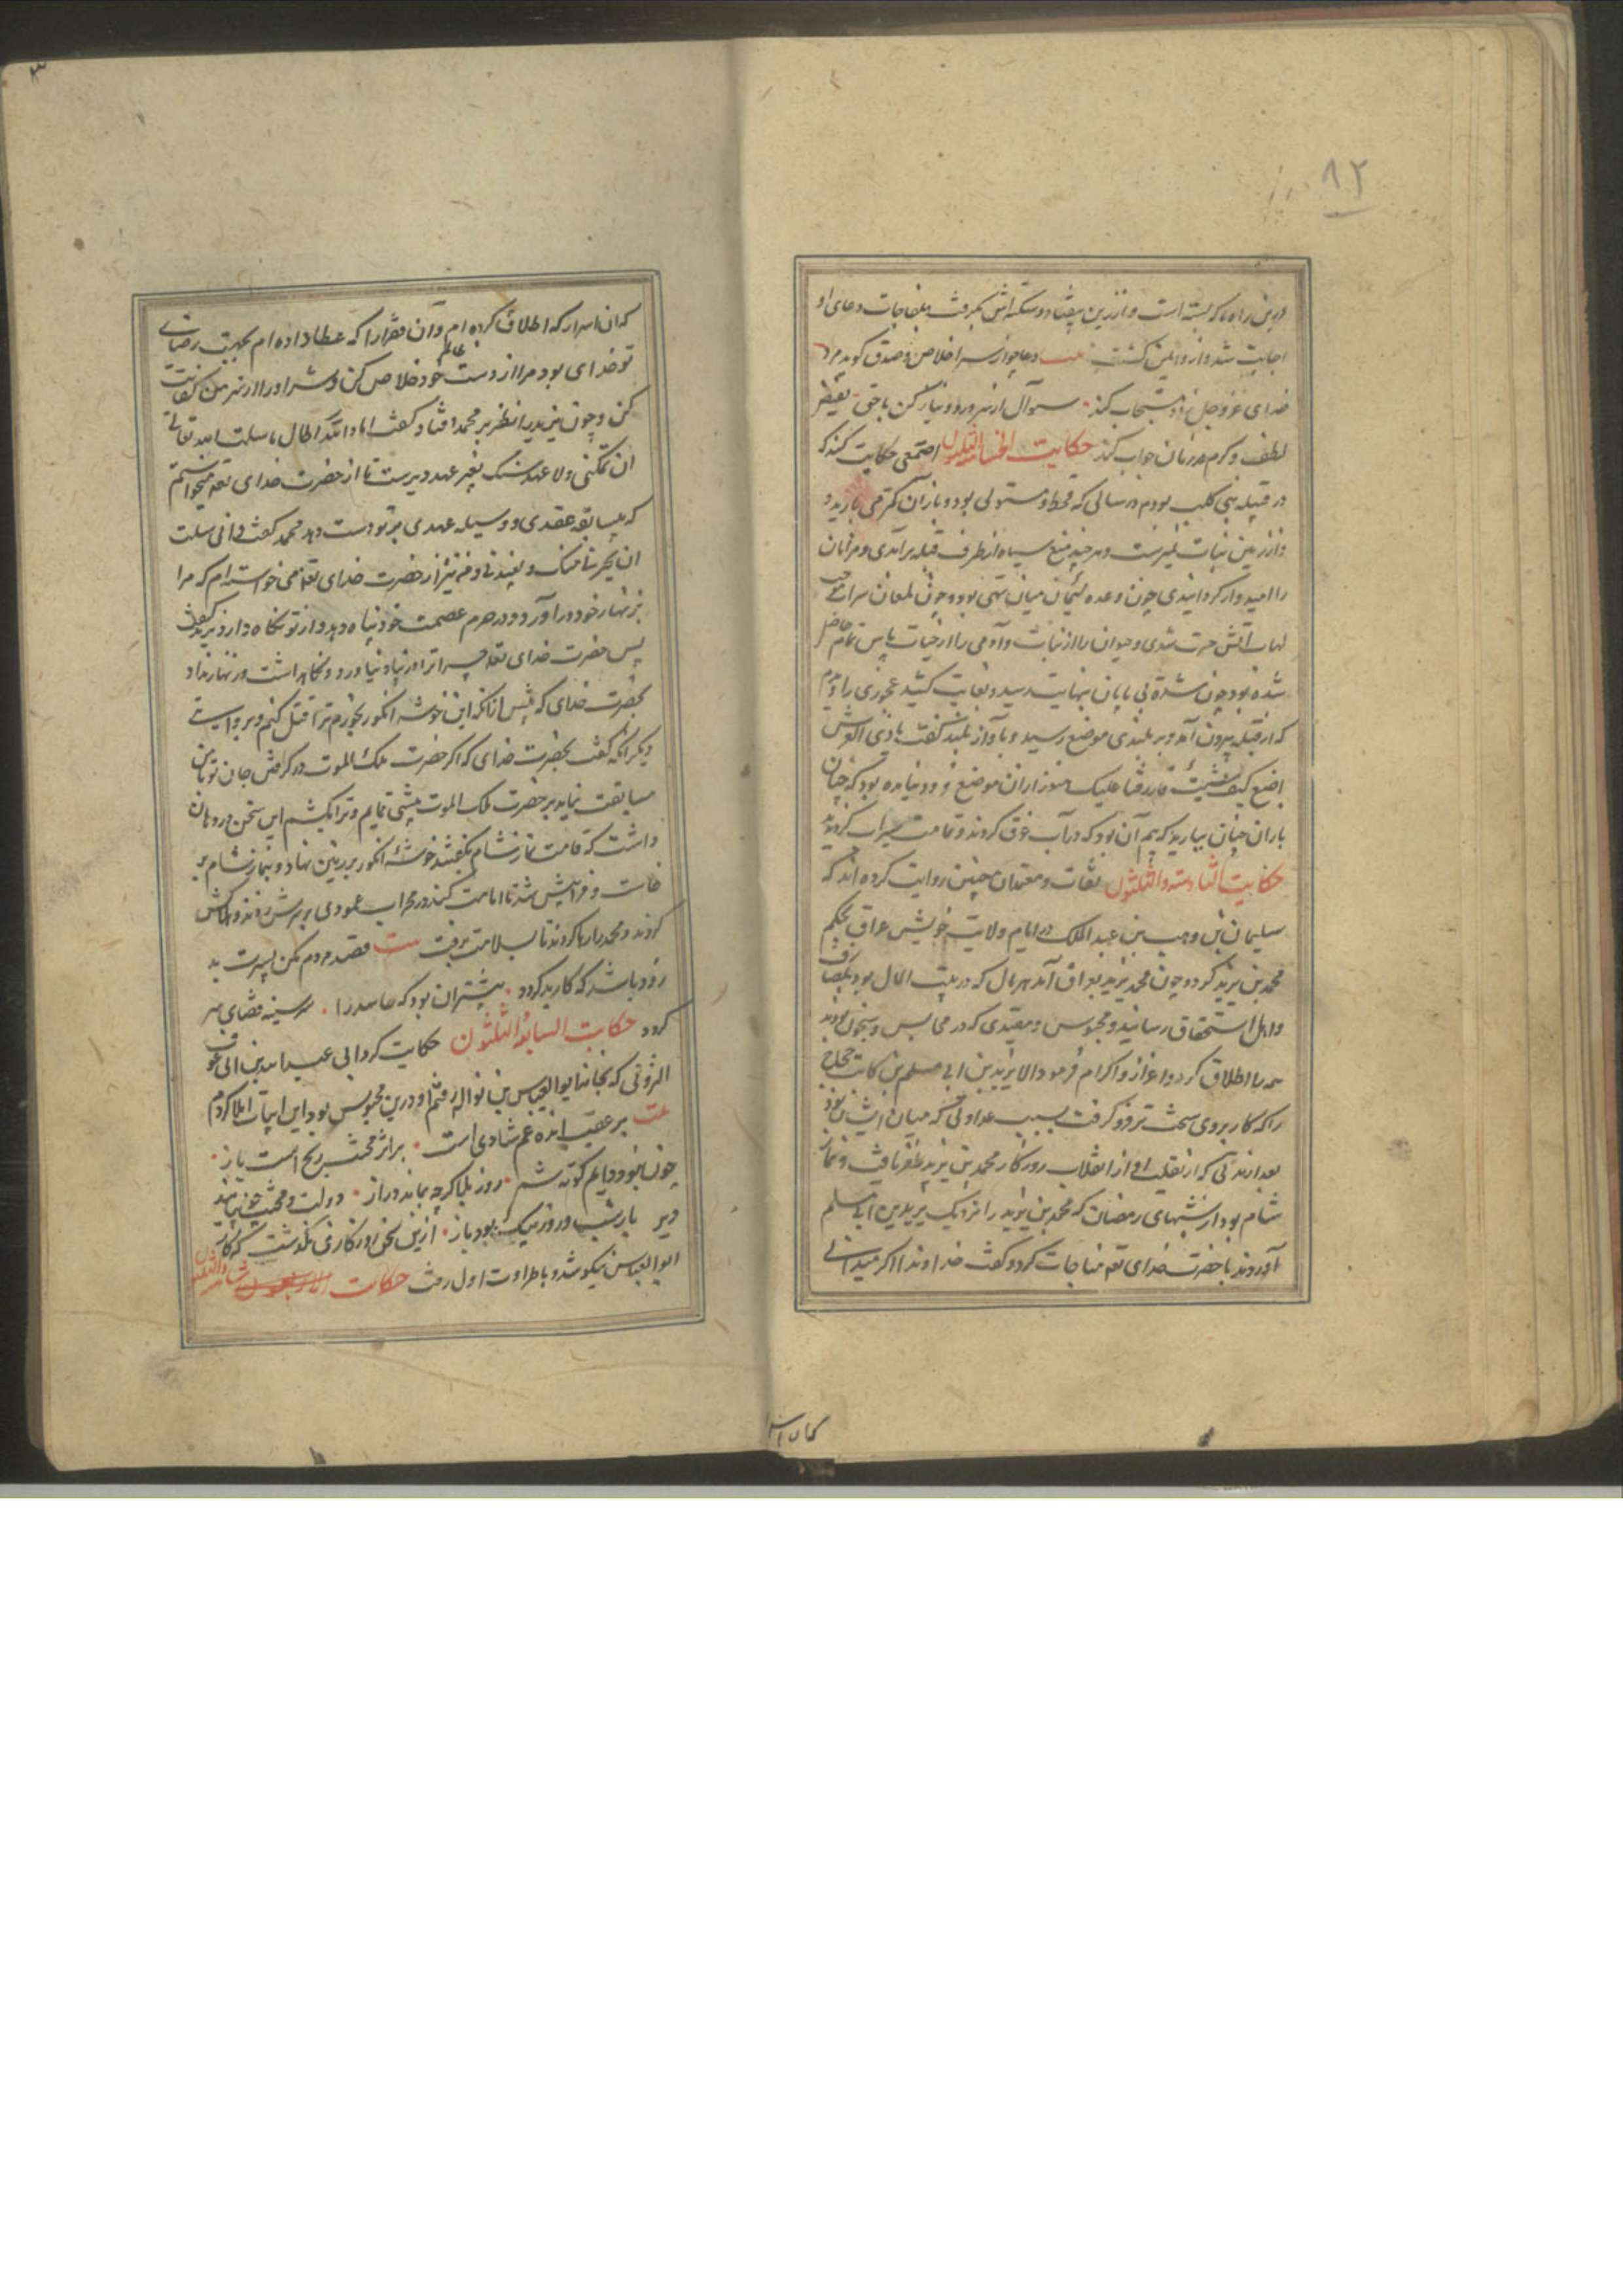 ۸۲
اجابت شد و از و ایمن کشت بیت دعا چو از سر اخلاص و صدق کوید مرد
خدای عز و جل زود مستجاب کند سوآل از سر ورد و نیاز کن با حق
لطف و کرم هر زمان جواب کند حکایت الخامسه و الثلثون اصمعی حکایت کند که
در قبیله بنی کلب بودم در سالی که قحط مستولی بود و باران کمتر می بارید و
از زمین نبات نمیرست و هر چند میغ سیاه از طرف قبله برآمدی و مردمان
را امیدوار کردانیدی چون وعده لئیمان میان تهی بود و چون لمعان سراب
التهاب آتش حرت شدی و حیوان را از نبات و آدمی را از حیات یاس تمام حاصل
شده بود چون شدة بی پایان بنهایت رسید و بغایت کشید عجوزی را دیدم
که از قبله بیرون آمد و بر بلندی موضع رسید و بآواز بلند کفت یا ذی العرش
اصنع کیف شئیت فارزقنا علیک هنوز از ان موضع فرود نیامده بود که چنان
باران چنان ببارید که بیم آن بود که در آب غرق کردند و تمامت سیراب کردیدند
حکایت السادسته و الثلثون ثقات و معتمدان چنین روایت کرده اند که
سلیمان بن وهب بن عبد الملک در ایام ولایت خویش عراق بحکم
محمد بن یزید کرد و چون محمد یزید بعراق آمد هر مال که در بیت المال بود بمصارف
و اهل استحقاق رسانید و محبوس و مقیدی که در محابس و سجون بودند
همه را اطلاق کرد و اعزاز و اکرام فرمود الا یزید بن ابی مسلم بن کاتب حجاج
را که کار بروی سخت تر فرو کرفت بسبب عداوتی که میان ایشان بود
بعد از مدتی که از تقلب ایام از انقلاب روزکار محمد بن یزید ظفر یافت و نماز
شام بود از شبهای رمضان که محمد بن یزید را نزدیک یزید بن ابی مسلم
آوردند با حضرت خدای تعه مناجات کرد و کفت خداوندا اکر میدانی
که ان اسرا که اطلاق کرده ام و آن فقرا را که عطا داده ام بجهت رضای
تو خدای بود مرا از دست ظالم خود خلاص کن و شر او را از سر من کفایت
کن و چون یزید را نظر بر محمد افتاد کفت اما و الله لطال ما سلت الله تعالی
ان تمکنی و لا عهد منک بغیر عهد دیرست تا از حضرت خدای تعه میخواستم
که بی سابقه عقدی و وسیله عهدی بر تو دست دهد محمد کفت و انی سلت
ان یحرسنا منک و یعیذنی و من نیز از حضرت خدای تعه می خواسته ام که مرا
بزنهار خود در آورد و در حرم عصمت خود پناه دهد و از تو نکاه دارد یزید کفت
پس حضرت خدای تعه چرا ترا در پناه نیاورد و نکاه نداشت و زنهار نداد
بحضرت خدای که پیش از انکه این خوشه انکور بخورم ترا قتل کنم و بروایت
دیکر انکه کفت بحضرت خدای که اکر حضرت ملک الموت در کرفتن جان تو با من
مسابقت نماید بر حضرت ملک الموت پیشی نمایم و ترا بکشم این سخن در دهان
داشت که قامت نماز شام بکفتند خوشه انکور بر زمین نهاد و بنماز شام بر
خاست و فراپیش شد تا امامت کند در محراب عمودی بر سرش زدند و هلاکش
کردند و محمد را رها کردند تا بسلامت برفت بیت قصد مردم مکن بسیرت بد
زود باشد که کار بد کردد بیشتر ان بود که حاسد را هر سینه قضای سر
کردد حکایت السابعة الثلثون حکایت کرد ابی عبد الله بن ابی عوف
المروزی که بخانه ابو العباس بن ثوابه رفتم او در بن محبوس بود این ابیات املا کردم
بیت بر عقب انده غم شادی است بر اثر محنت و رنج است ناز
چون نبود دایم کوته شمر روز بلا کرچه بماند دراز دولت و محنت چو نپاید
دیر یار شب و روز نیک بود باز ازین سخن روزکاری نکذشت که کار
ابو العباس نیکو شد و با طراوت اول رفت حکایت الثامنه و الثلثون